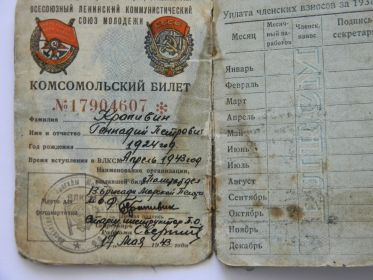 ВСЕСОЮЗНЫЙ ЛЕНИНСКИЙ КОММУНИСТИЧЕСКИЙ
СОЮЗ МОЛОДЕЖИ
КОМСОМОЛЬСКИЙ БИЛЕТ
№17904607 *
Фамилия Крапивин
Имя и отчество Геннадий Петрович
Год рождения 1924 год
Время вступления в ВЛКСМ Апрель 1943 год
Наименование организации,
выдавшей билет Политотдел
13 бригада Морской Пехоты
Место для
фотокарточки
Старш инструктор П.О.
17 мая 1943 года
Уплата членских взносов за 193
Месяц
Месяч-
ный за-
работок
Членск.
взнос
Подпись
секретаря
Январь
Февраль
Март
Апрель
Май
Июнь
Июль
Август
Сентябрь
Октябрь
Ноябрь
Декабрь